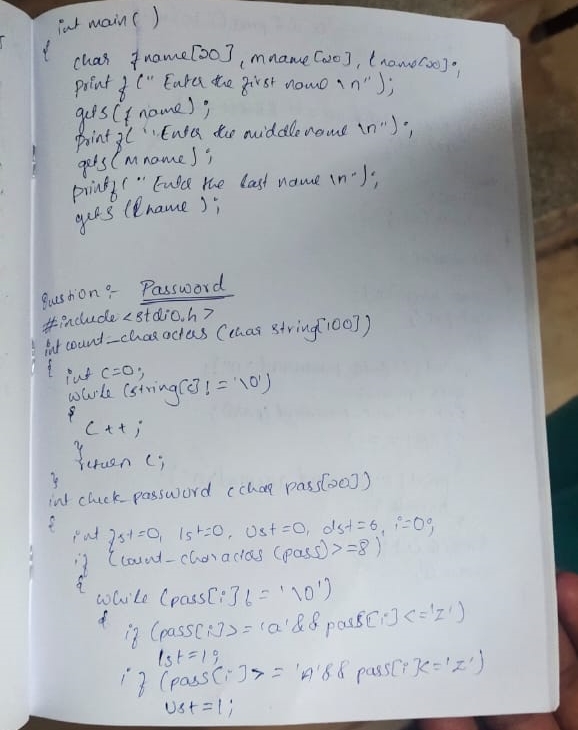 int main( )
{
char fname[20], mname[20], lname[20];
printf (" Enter the first name \n");
gets (f name);
printf(" Enter the middle name \n");
gets (mname);
printf(" Enter the last name \n");
gets (lname);
Question :- Password
#include <stdio.h>
int count-characters (char string[100])
{
int c=0;
while (string[c] != '\0')
{
c++;
}
return c;
}
int check-password (char pass[20])
{
int fst=0, lst=0, Ust=0, dst=0, i=0;
if (count-characters (pass)>=8)
{
while (pass[i] != '\0')
{
if (pass[i]>= 'a' && pass[i]<='z')
lst=1;
if (pass[i]>= 'A' && pass[i]<='z')
Ust=1;